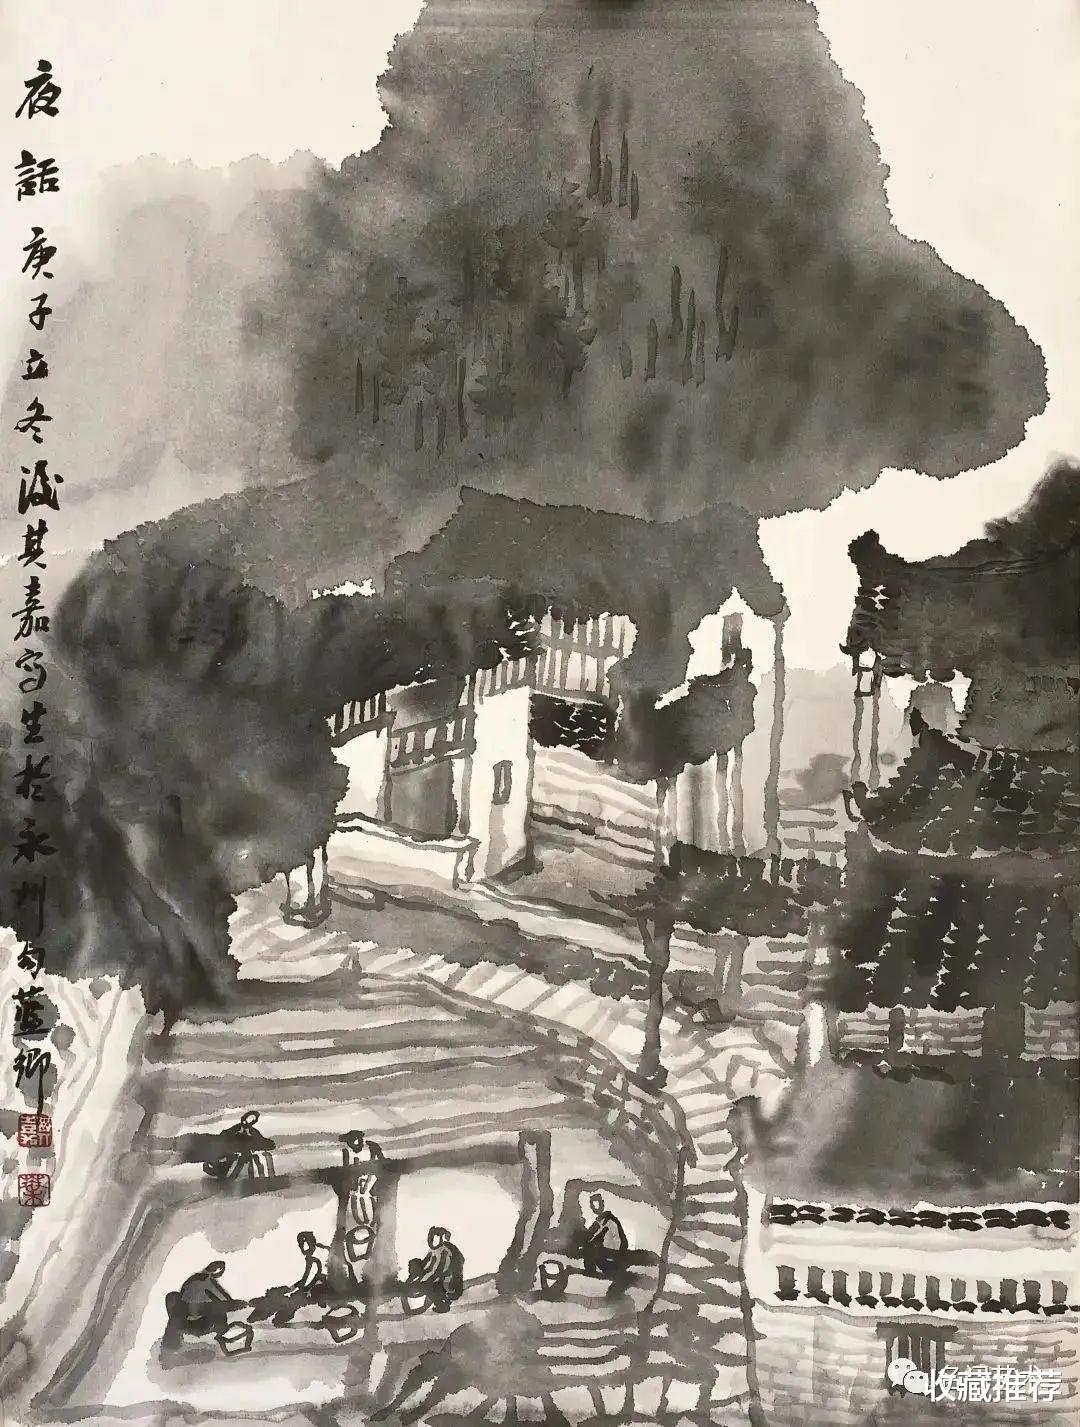 夜話 庚子立冬後其嘉写生於永州勾藍鄉
收藏推荐